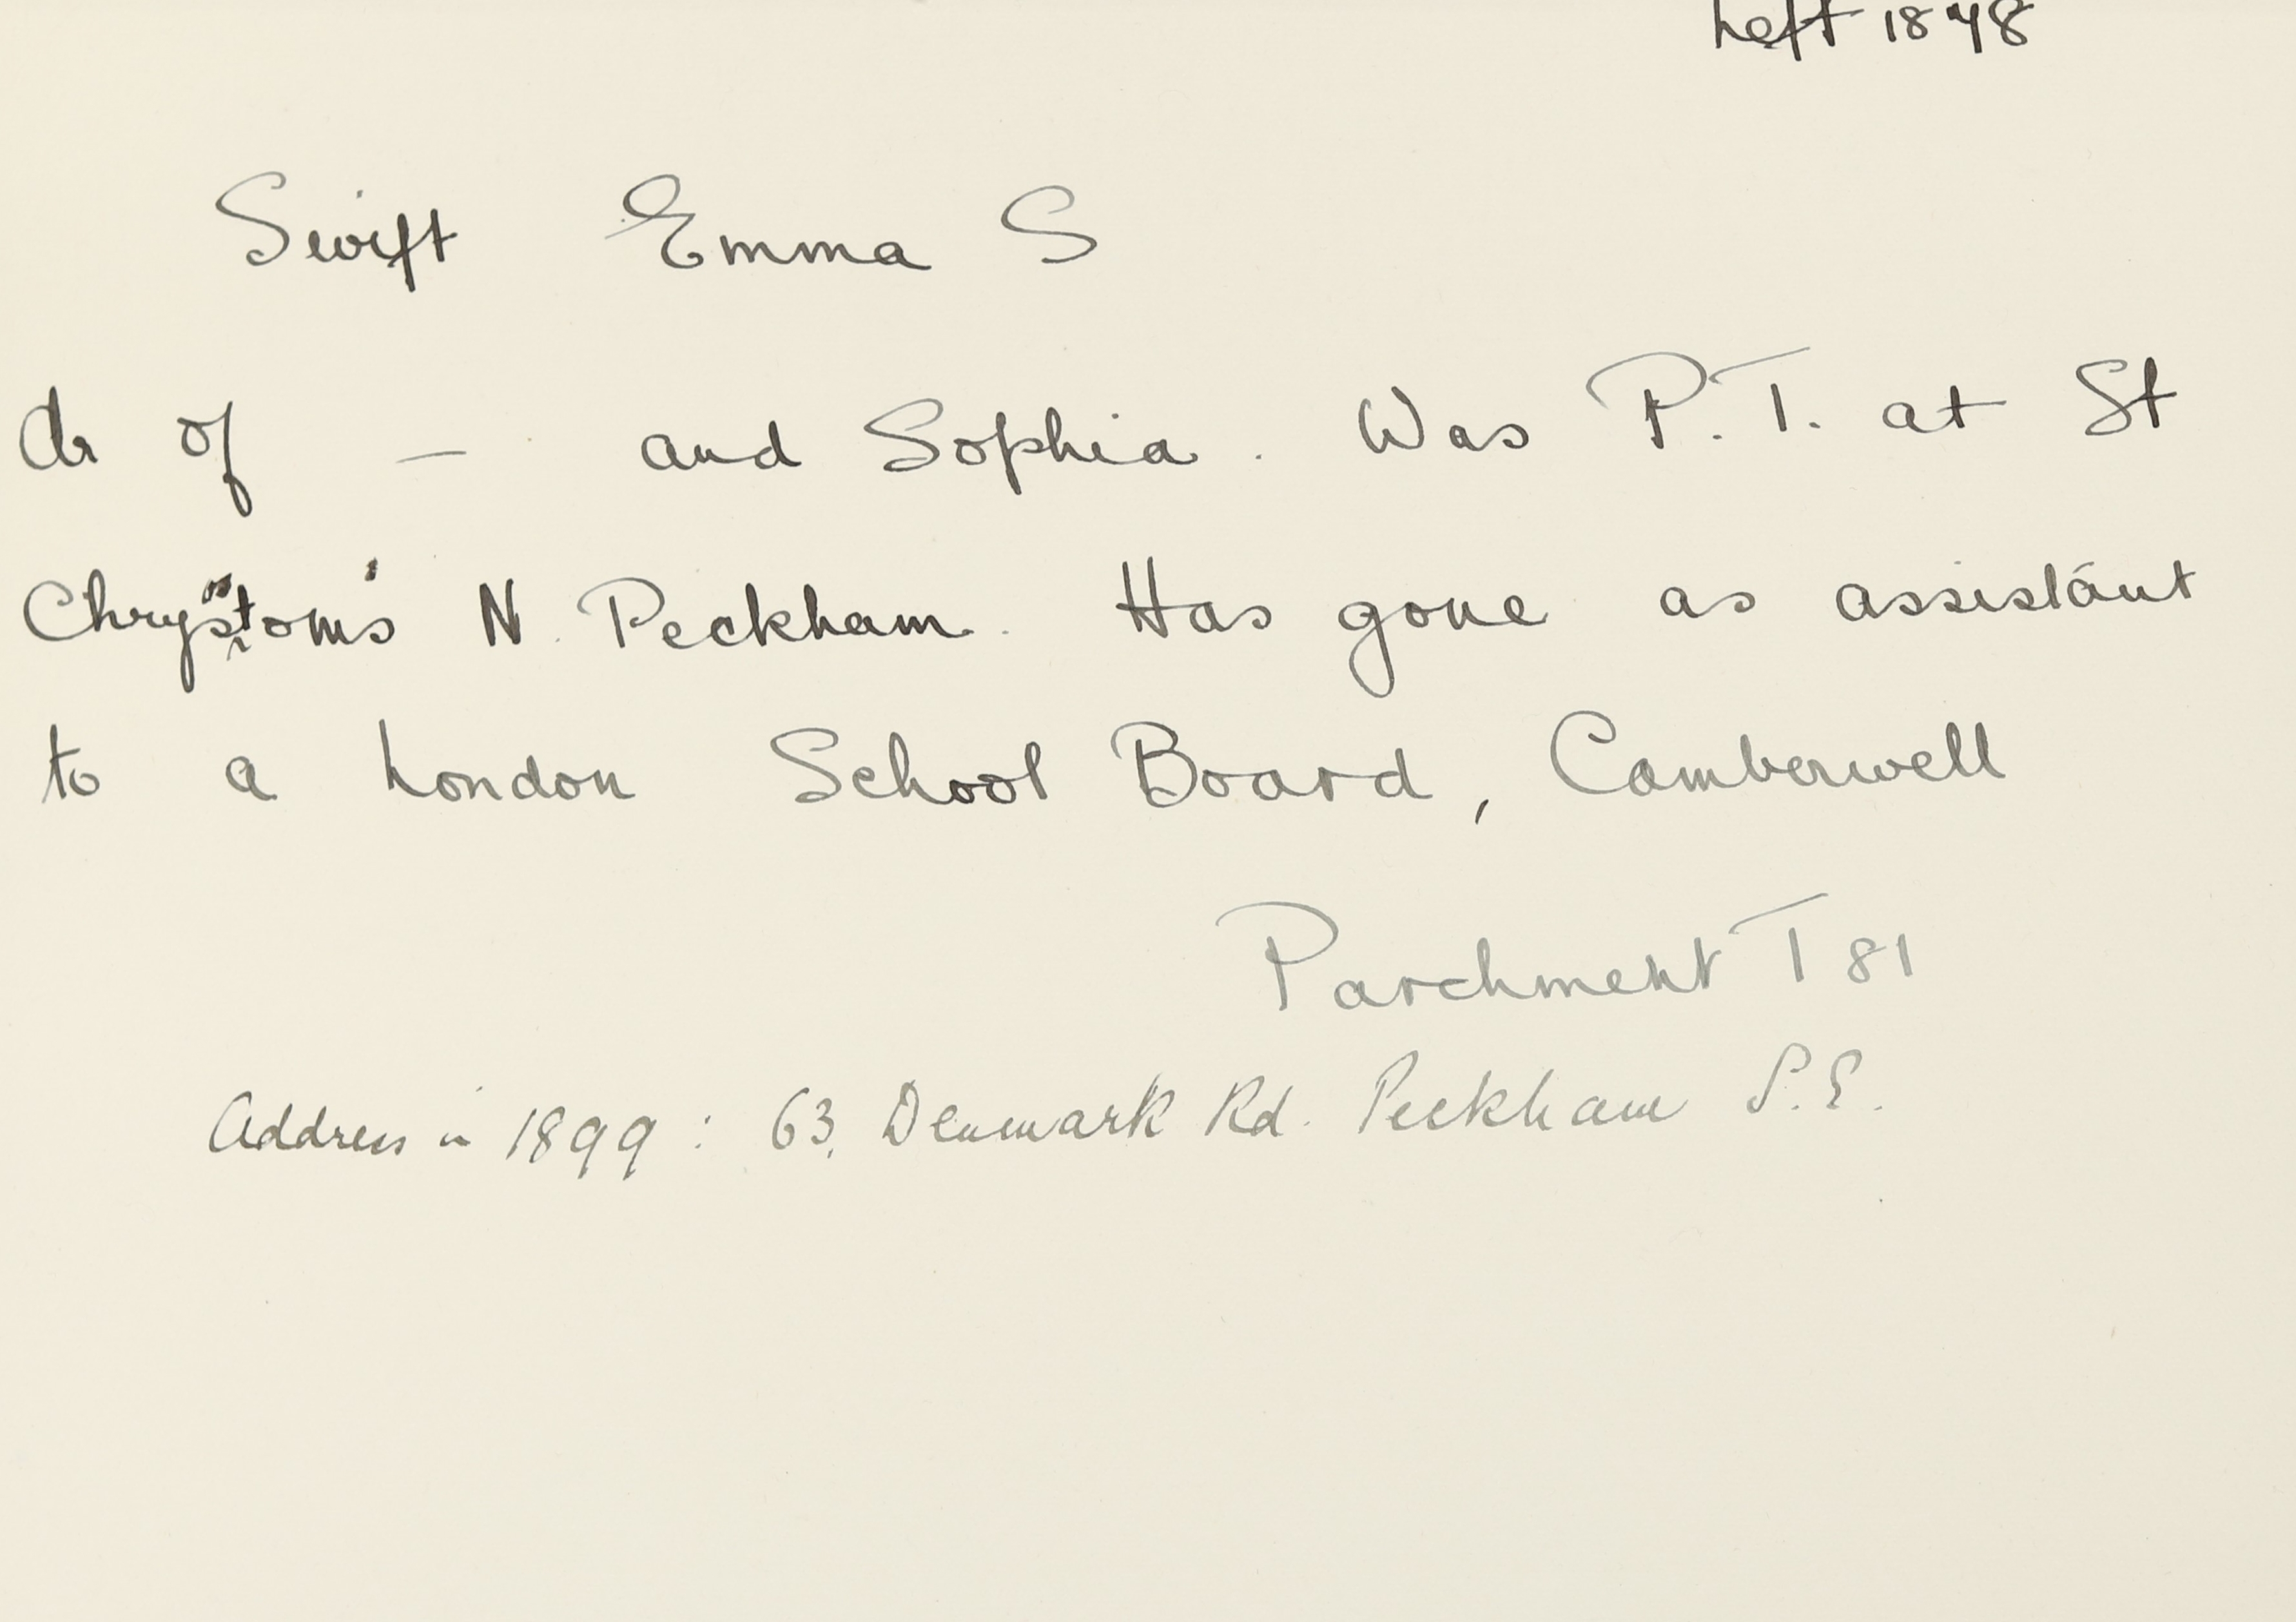 Left 1878
Swift Emma S
dr of — and Sophia. Was P.T. at St
Chrysostom's N. Peckham. Has gone as assistant
to a London School Board, Camberwell
Parchment T 81
Address in 1899: 63, Denmark Rd. Peckham S.E.